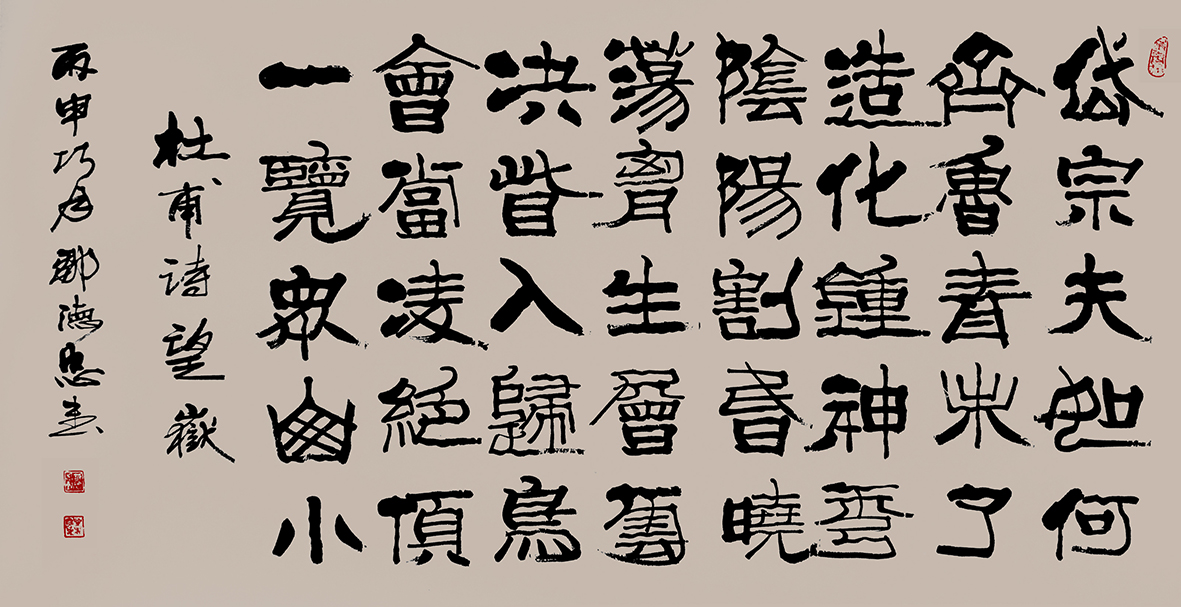 岱宗夫如何
齊魯青未了
造化鍾神秀
陰陽割昏曉
蕩胷生層雲
決眥入歸鳥
會當凌絕頂
一覽眾山小
杜甫詩望嶽
丙申巧月鄒德忠書